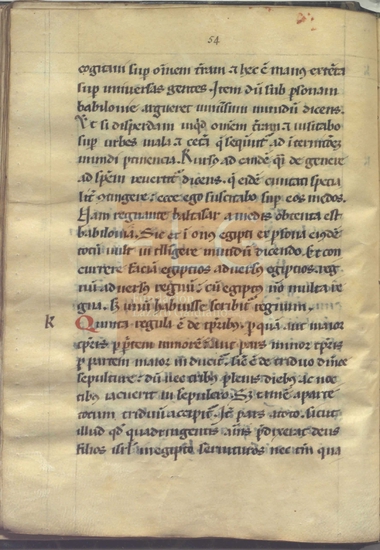 54
cogitaui sup omem tram ⁊ hec ē manus extēta
sup uniuersas gentes. Item dū sub psonam
babilonie argueret uniuersum mundū dicens.
Et si disperdam inqd omem tram ⁊ uisitabo
sup orbis mala ⁊ cetā q sequūt ad
mundi ptinencia. Rursꝯ ad eandē qi de genere
ad spēm reuertit dicens. q eidē ciuitati specia
litr ɔtingere: ecce ego suscitabo sup eos medos.
Nam regnante baltasar a medis obtenta est
babilonia. Sic et ī onꝯ egipti ex psona eiusdē
totū uult intelligere mundū dicendo. Et con
currere faciā egiptios aduersꝯ egiptios. reg
nū aduersꝯ regnū: cū egiptus nō multa re
gna. sꝫ unū habuisse scribit regnum.
K
Quinta regula ē de tpribꝯ. p quā aut maior
tpris ps p ptem minorē aut pars minor tpris
p partem maior inducit. sic ē de triduo dnice
sepulture: dū nec tribꝯ plenis diebꝯ ac noc
tibꝯ iacuerit in sepulcro. Sꝫ tamē a parte
totum triduū accipit. It pars a toto. sicut
illud qd quadringentis annis pdixerat deus
filios isrl in egipto seruituros nec tm qua